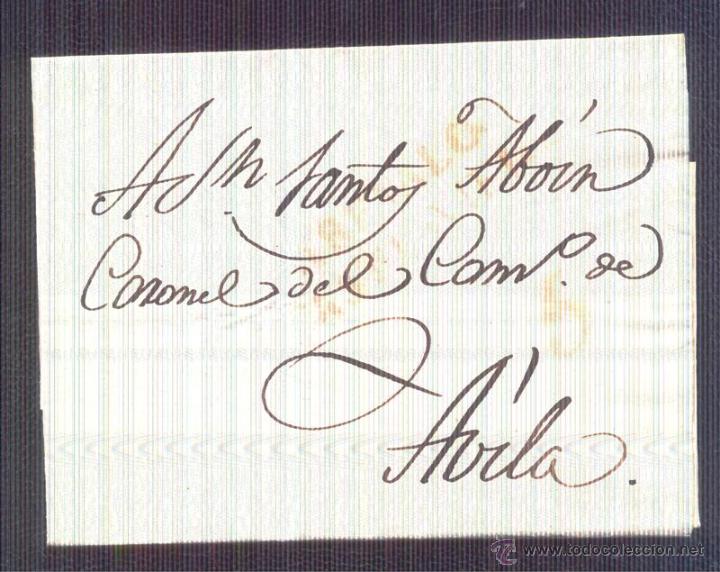 A Sn. Santos Aboin
Coronel del Camp.o de
Ávila.
www.todocoleccion.net